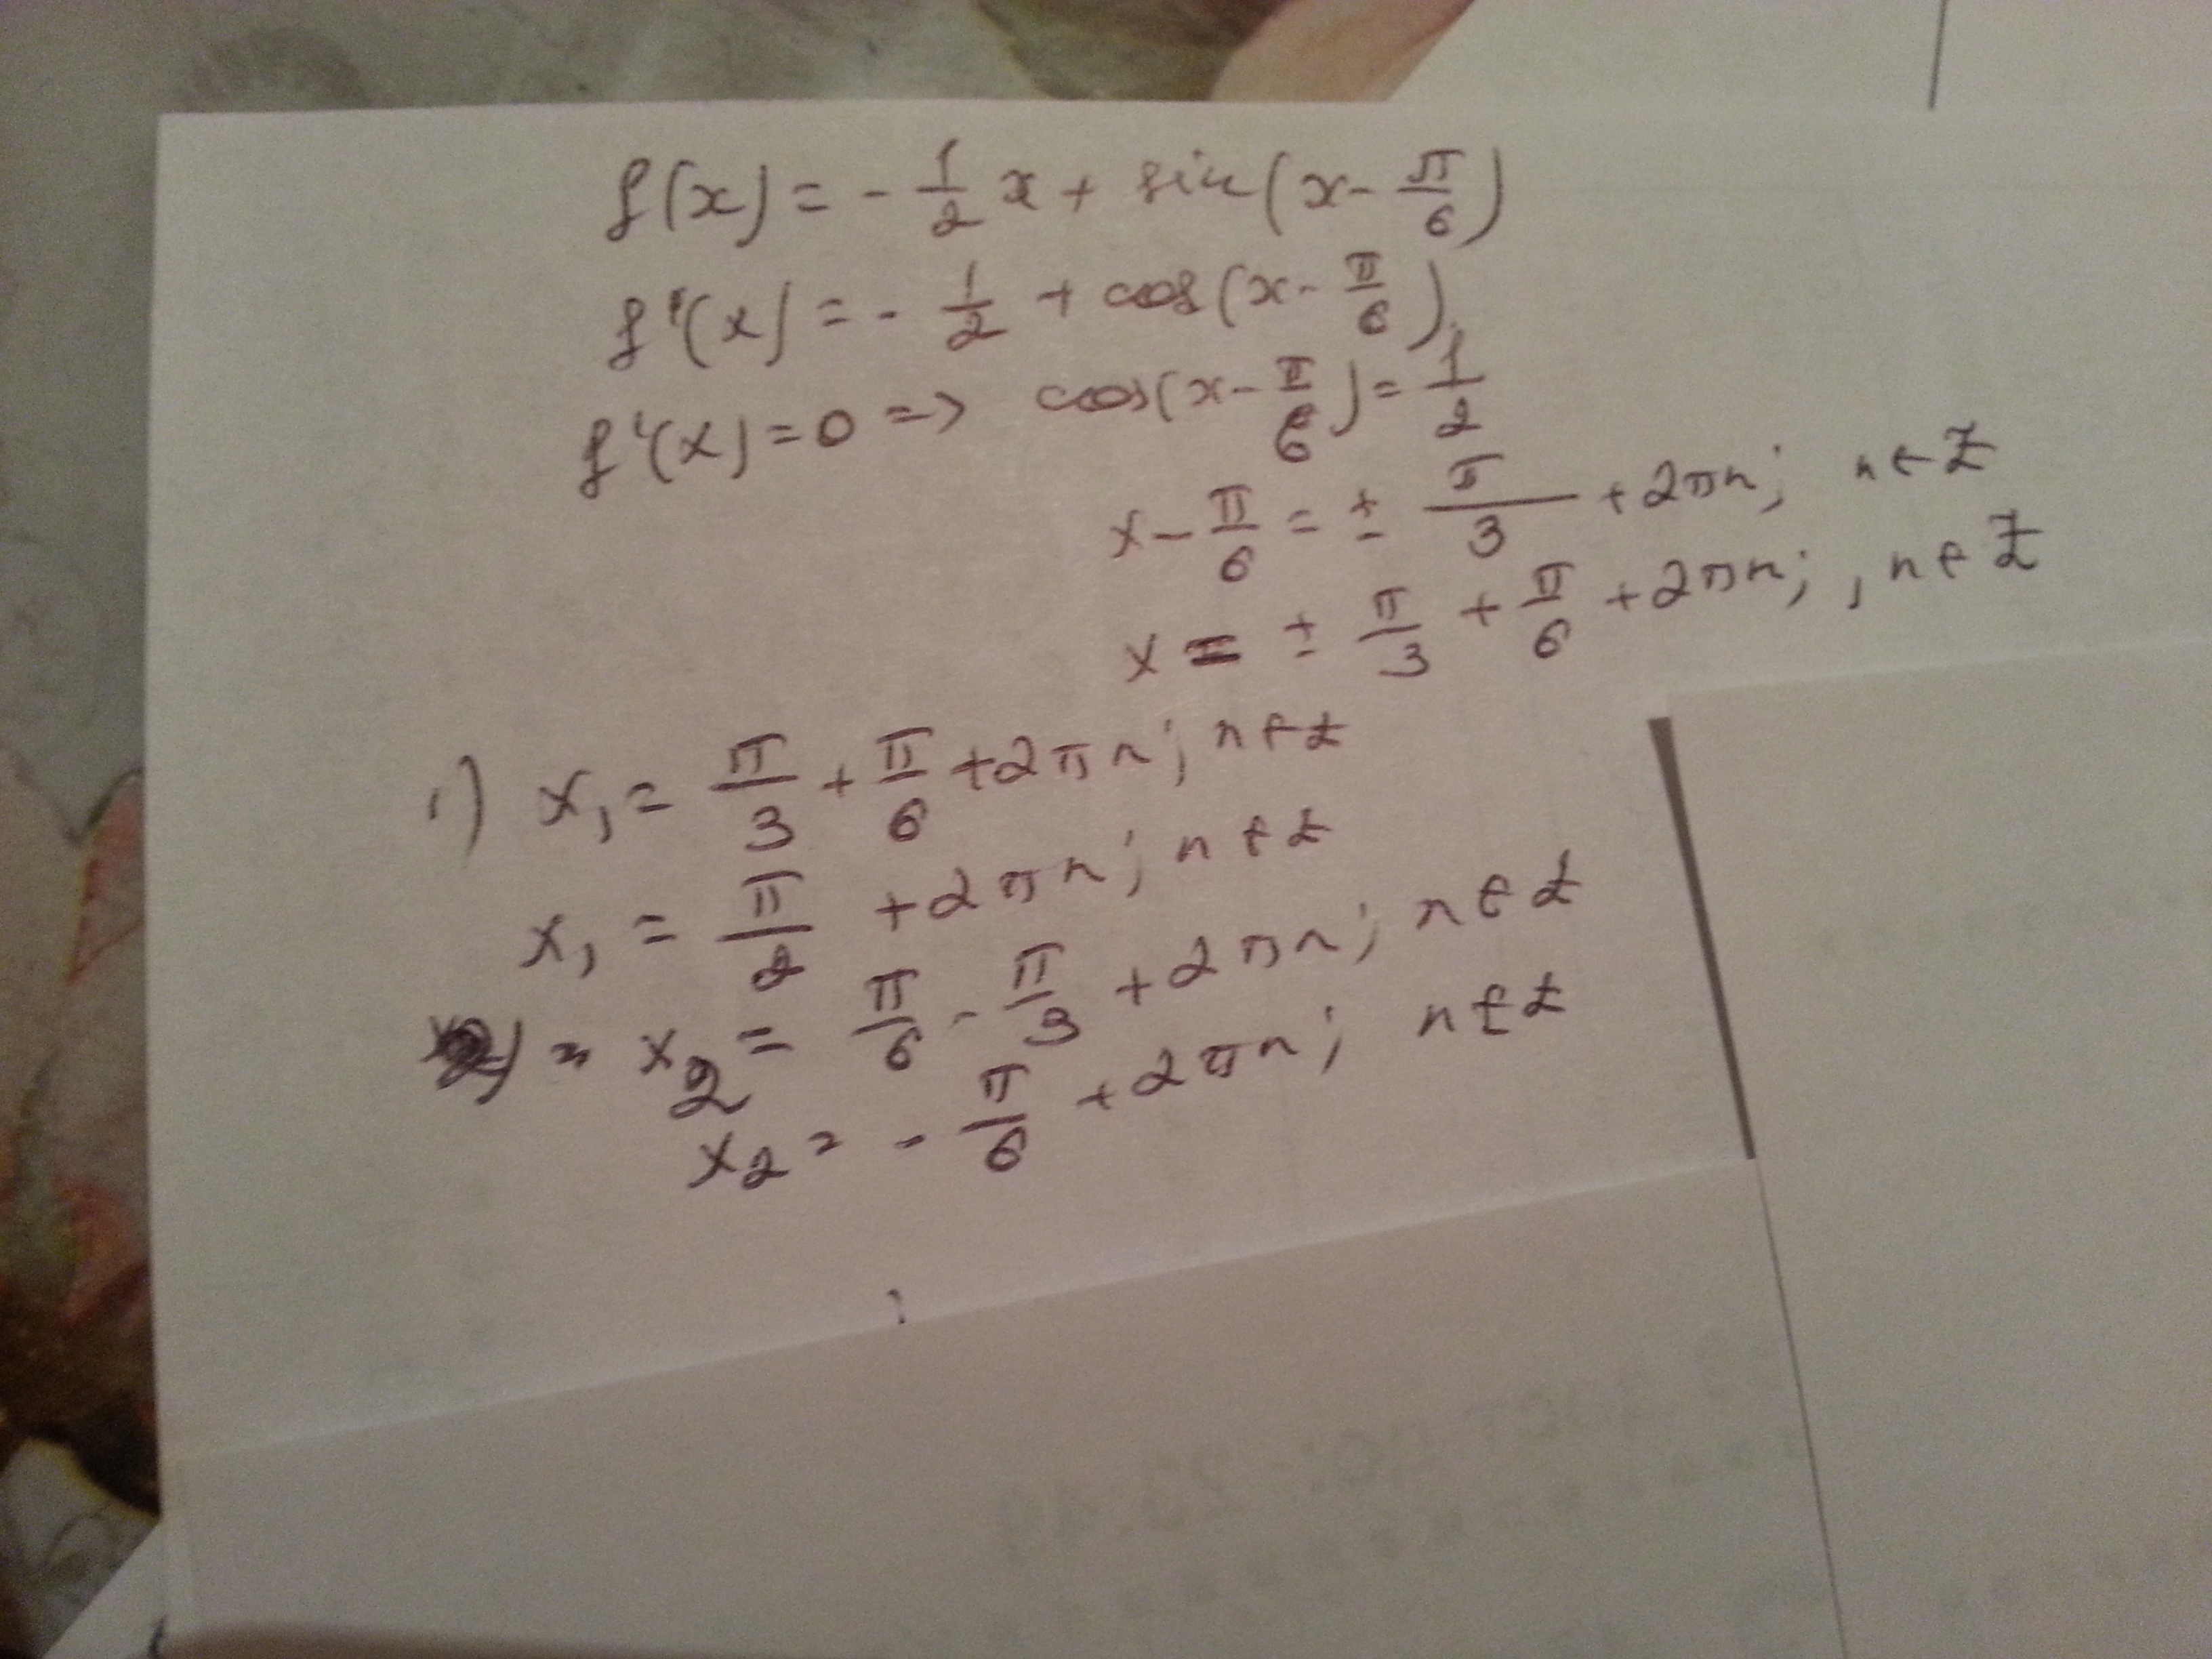 f(x) = - 1/2 x + sin(x - π/6)
f'(x) = - 1/2 + cos(x - π/6)
f'(x) = 0 => cos(x - π/6) = 1/2
x - π/6 = ± π/3 + 2πn; n ∈ Z
x = ± π/3 + π/6 + 2πn; , n ∈ Z
1) x₁ = π/3 + π/6 + 2πn; n ∈ Z
x₁ = π/2 + 2πn; n ∈ Z
x₂ = π/6 - π/3 + 2πn; n ∈ Z
x₂ = - π/6 + 2πn; n ∈ Z